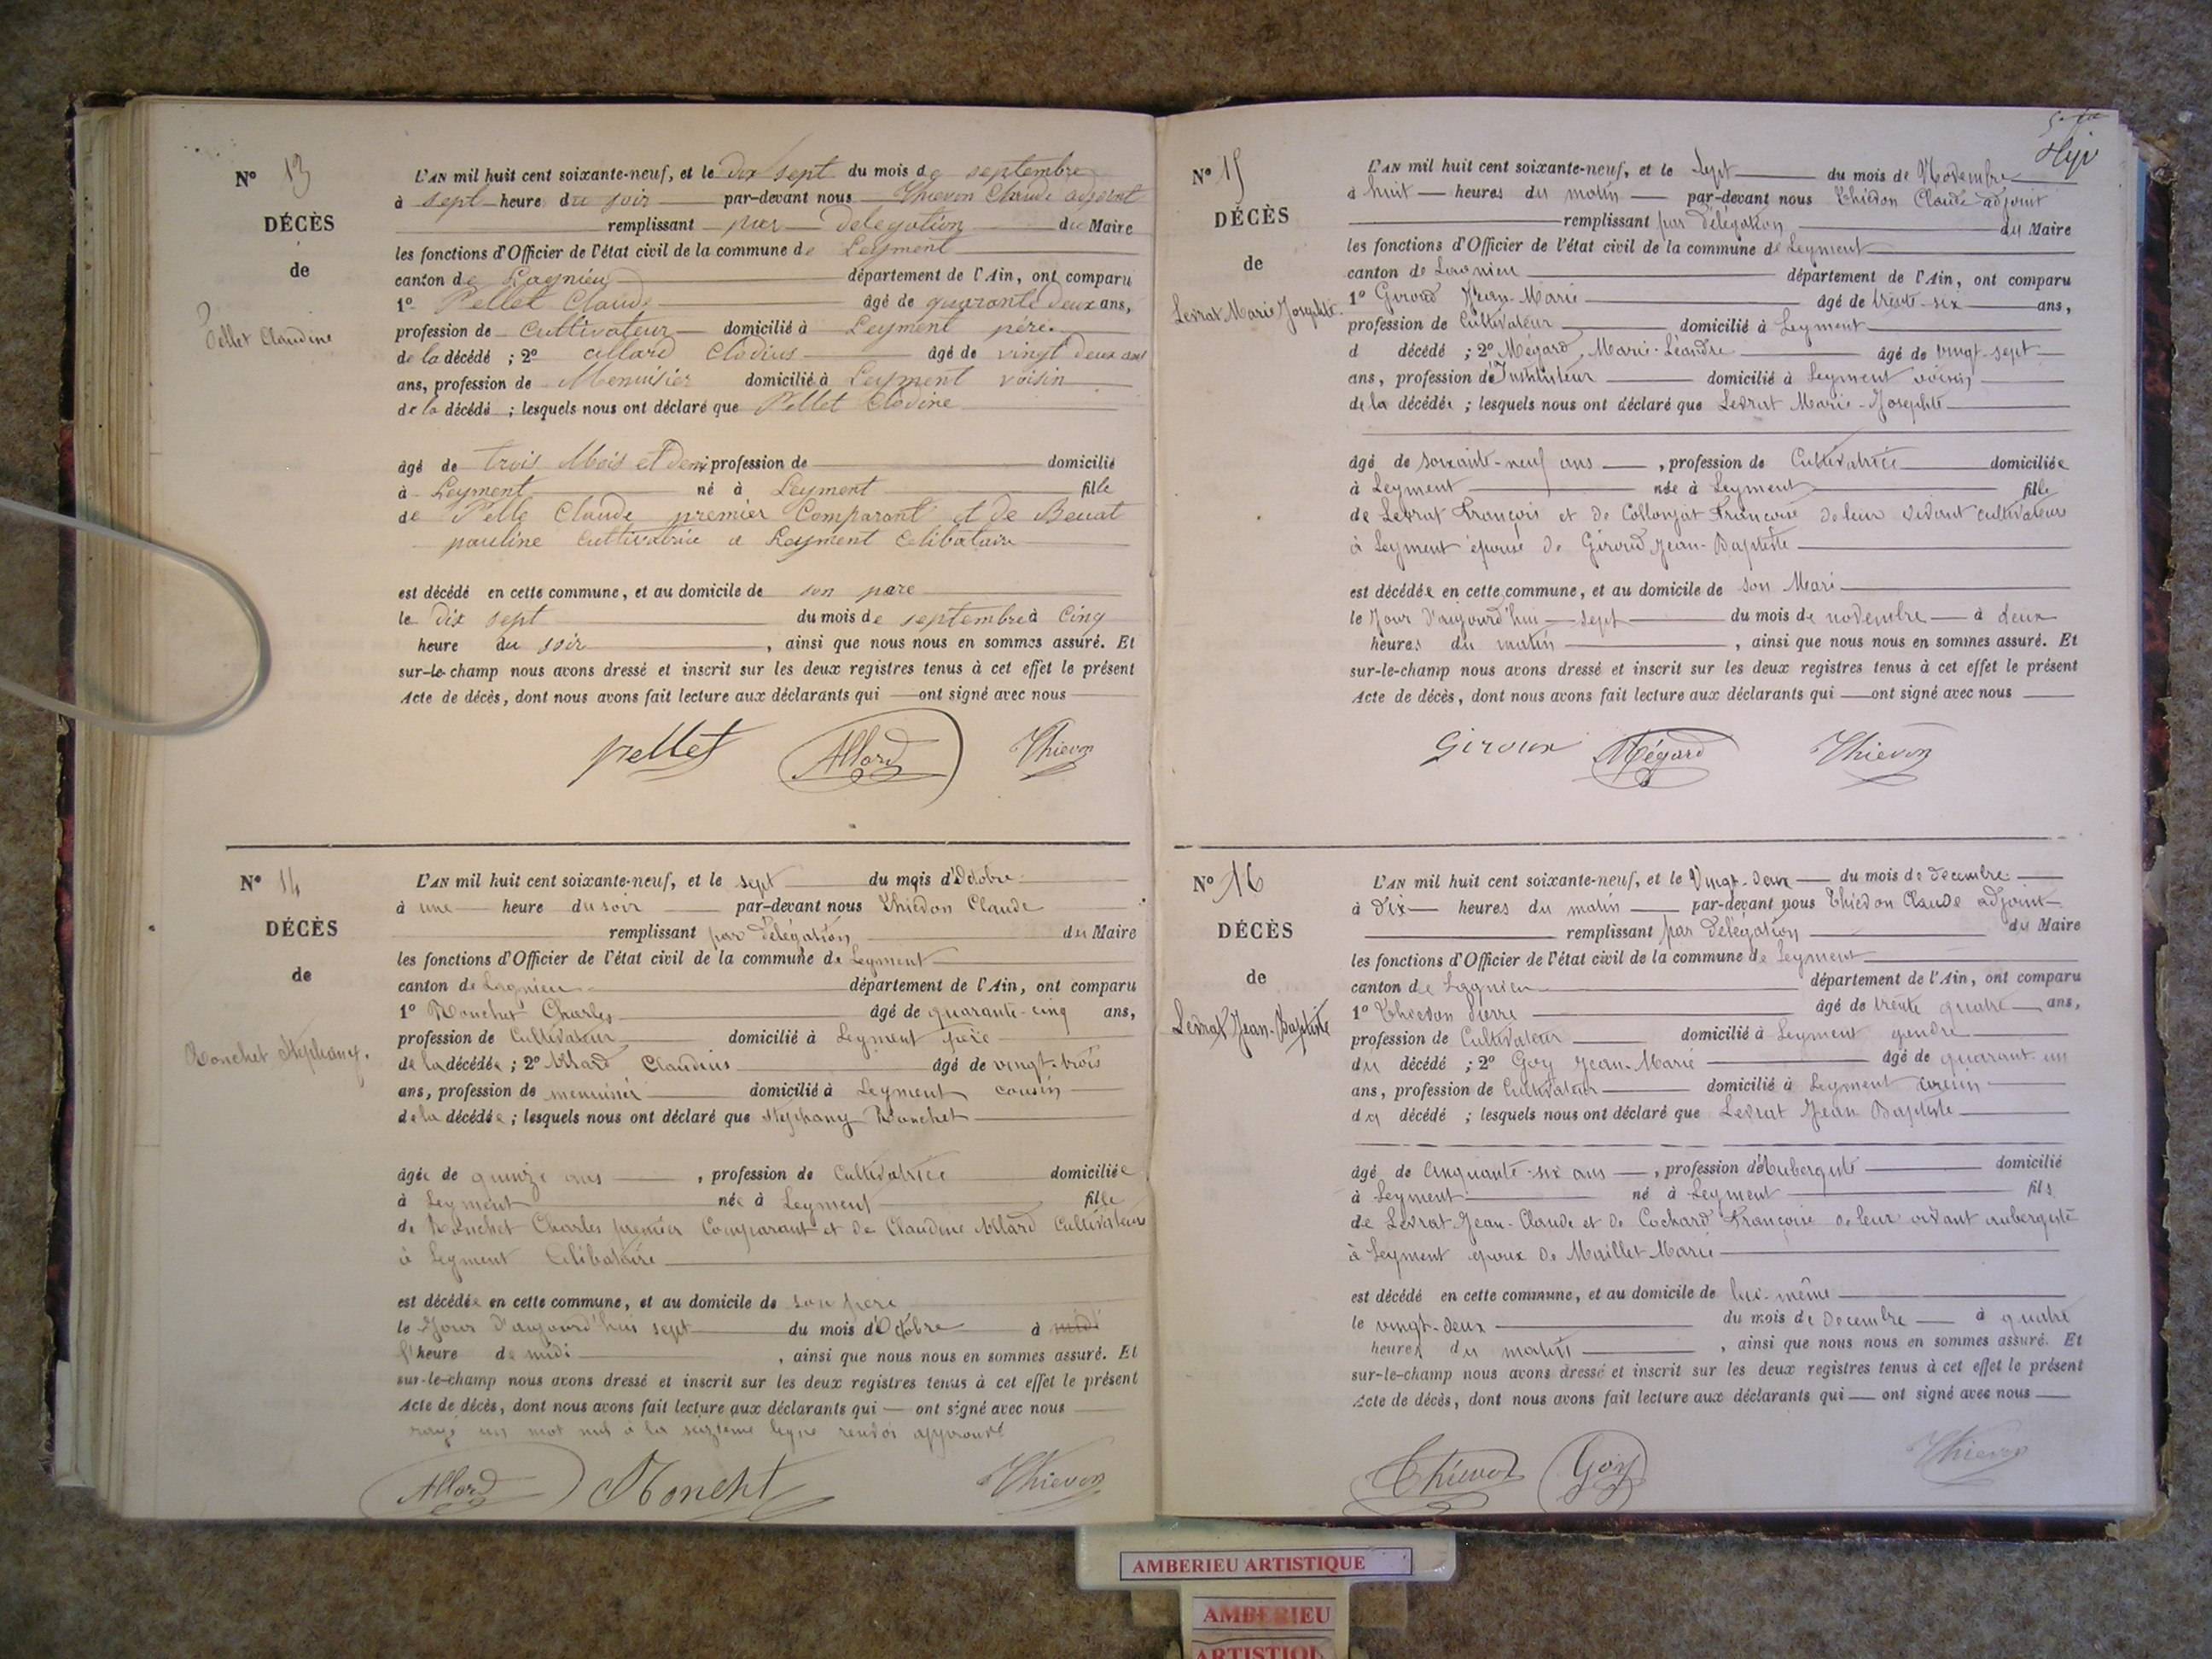 N° 13
DÉCÈS
de
Pellet Claudine
L'AN mil huit cent soixante-neuf, et le dix sept du mois de septembre
à sept heure du soir par-devant nous Thievon Claude adjoint
remplissant par delegation du Maire
les fonctions d'Officier de l'état civil de la commune de Leyment
canton de Lagnieu département de l'Ain, ont comparu
1° Pellet Claude âgé de quarante deux ans,
profession de Cultivateur domicilié à Leyment père
de la décédé ; 2° allard Clodius âgé de vingt deux ans
ans, profession de Menuisier domicilié à Leyment voisin
de la décédé ; lesquels nous ont déclaré que Pellet Clodine
âgé de trois Mois et demi profession de domicilié
à Leyment né à Leyment fille
de Pelle Claude premier Comparant et de
pauline Cultivatrice a Leyment Celibataire
est décédé en cette commune, et au domicile de son pere
le Dix sept du mois de septembre à Cinq
heure du soir , ainsi que nous nous en sommes assuré. Et
sur-le-champ nous avons dressé et inscrit sur les deux registres tenus à cet effet le présent
Acte de décès, dont nous avons fait lecture aux déclarants qui ont signé avec nous
pellet Allard Thievon
N° 14
DÉCÈS
de
Ronchet Stephany.
L'AN mil huit cent soixante-neuf, et le sept du mois d'Octobre
à une heure du soir par-devant nous Thiévon Claude
remplissant par délégation du Maire
les fonctions d'Officier de l'état civil de la commune de Leyment
canton de Lagnieu département de l'Ain, ont comparu
1° Ronchet Charles âgé de quarante-cinq ans,
profession de Cultivateur domicilié à Leyment père
de la décédée ; 2° Allard Claudius âgé de vingt-trois
ans, profession de menuisier domicilié à Leyment cousin
de la décédée ; lesquels nous ont déclaré que Stéphany Ronchet
âgée de quinze ans , profession de Cultivatrice domiciliée
à Leyment née à Leyment fille
de Ronchet Charles premier Comparant et de Claudine Allard Cultivateurs
à Leyment Célibataire
est décédée en cette commune, et au domicile de son père
le Jour d'aujourd'hui sept du mois d'Octobre à midi
l'heure de midi , ainsi que nous nous en sommes assuré. Et
sur-le-champ nous avons dressé et inscrit sur les deux registres tenus à cet effet le présent
Acte de décès, dont nous avons fait lecture aux déclarants qui ont signé avec nous
rayé un mot nul à la seizième ligne renvoi approuvé
Allard Ronchet Thievon
N° 15
DÉCÈS
de
Levrat Marie Josephte.
L'AN mil huit cent soixante-neuf, et le Sept du mois de Novembre
à huit heures du matin par-devant nous Thiévon Claude adjoint
remplissant par délégation du Maire
les fonctions d'Officier de l'état civil de la commune de Leyment
canton de Lagnieu département de l'Ain, ont comparu
1° Giroud Jean-Marie âgé de trente-six ans,
profession de Cultivateur domicilié à Leyment
d décédé ; 2° Mégard, Marie-Léandre âgé de vingt-sept
ans, profession d'Instituteur domicilié à Leyment voisin
de la décédée ; lesquels nous ont déclaré que Levrat Marie-Josephte
âgé de soixante-neuf ans , profession de Cultivatrice domiciliée
à Leyment née à Leyment fille
de Levrat François et de Collonjat Françoise de leur vivant cultivateurs
à Leyment épouse de Giroud Jean-Baptiste
est décédée en cette commune, et au domicile de son Mari
le Jour d'aujourd'hui sept du mois de novembre à deux
heures du matin , ainsi que nous nous en sommes assuré. Et
sur-le-champ nous avons dressé et inscrit sur les deux registres tenus à cet effet le présent
Acte de décès, dont nous avons fait lecture aux déclarants qui ont signé avec nous
Giroud Mégard Thievon
N° 16
DÉCÈS
de
Levrat Jean-Baptiste
L'AN mil huit cent soixante-neuf, et le Vingt-deux du mois de décembre
à dix heures du matin par-devant nous Thiévon Claude adjoint
remplissant par délégation du Maire
les fonctions d'Officier de l'état civil de la commune de Leyment
canton de Lagnieu département de l'Ain, ont comparu
1° Thiévon Pierre âgé de trente quatre ans,
profession de Cultivateur domicilié à Leyment gendre
du décédé ; 2° Goy Jean-Marie âgé de quarant-un
ans, profession de Cultivateur domicilié à Leyment voisin
du décédé ; lesquels nous ont déclaré que Levrat Jean Baptiste
âgé de cinquante-six ans , profession d'Aubergiste domicilié
à Leyment né à Leyment fils
de Levrat Jean-Claude et de Cochard Françoise de leur vivant aubergiste
à Leyment époux de Maillet Marie
est décédé en cette commune, et au domicile de lui-même
le vingt-deux du mois de Décembre à quatre
heures du matin , ainsi que nous nous en sommes assuré. Et
sur-le-champ nous avons dressé et inscrit sur les deux registres tenus à cet effet le présent
Acte de décès, dont nous avons fait lecture aux déclarants qui ont signé avec nous
Thievon Goy Thievon
AMBERIEU ARTISTIQUE
AMBERIEU